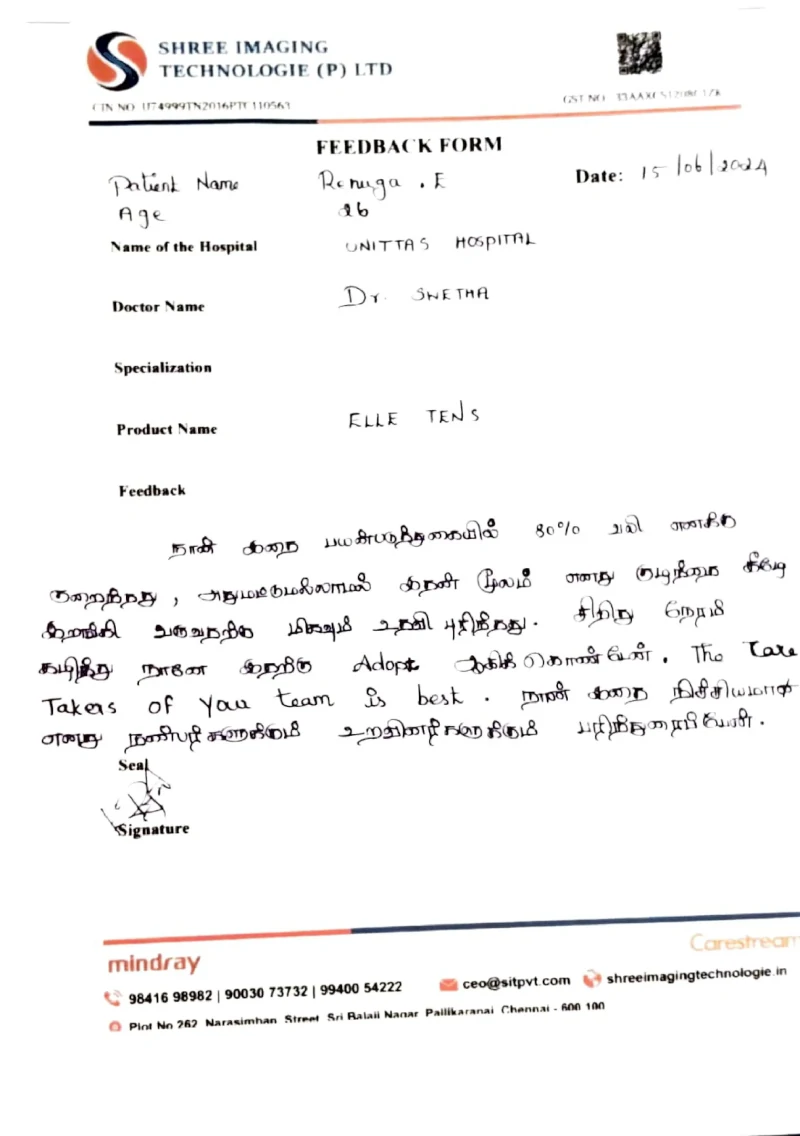 SHREE IMAGING
TECHNOLOGIE (P) LTD
CIN NO U74999TN2016PTC110563
GST NO
FEEDBACK FORM
Patient Name Renuga . E Date: 15/06/2024
Age 26
Name of the Hospital UNITTAS HOSPITAL
Doctor Name Dr. SWETHA
Specialization
Product Name ELLE TENS
Feedback
நான் இதை பயன்படுத்துகையில் 80% வலி எனக்கு
குறைந்தது , அதுமட்டுமல்லாமல் இதன் மூலம் எனது குழந்தை கீழே
இறங்கி வருவதற்கு மிகவும் உதவி புரிந்தது . சிறிது நேரம்
கழித்து நானே இதற்கு Adopt ஆகிக் கொண்டேன் . The Care
Takers of your team is best . நான் இதை நிச்சியமாக
எனது நண்பர்களுக்கும் உறவினர்களுக்கும் பரிந்துரைப்பேன் .
Seal
Signature
mindray Carestream
98416 98982 | 90030 73732 | 99400 54222 ceo@sitpvt.com shreeimagingtechnologie.in
Plot No 262, Narasimhan Street, Sri Balaji Nagar, Pallikaranai, Chennai - 600 100